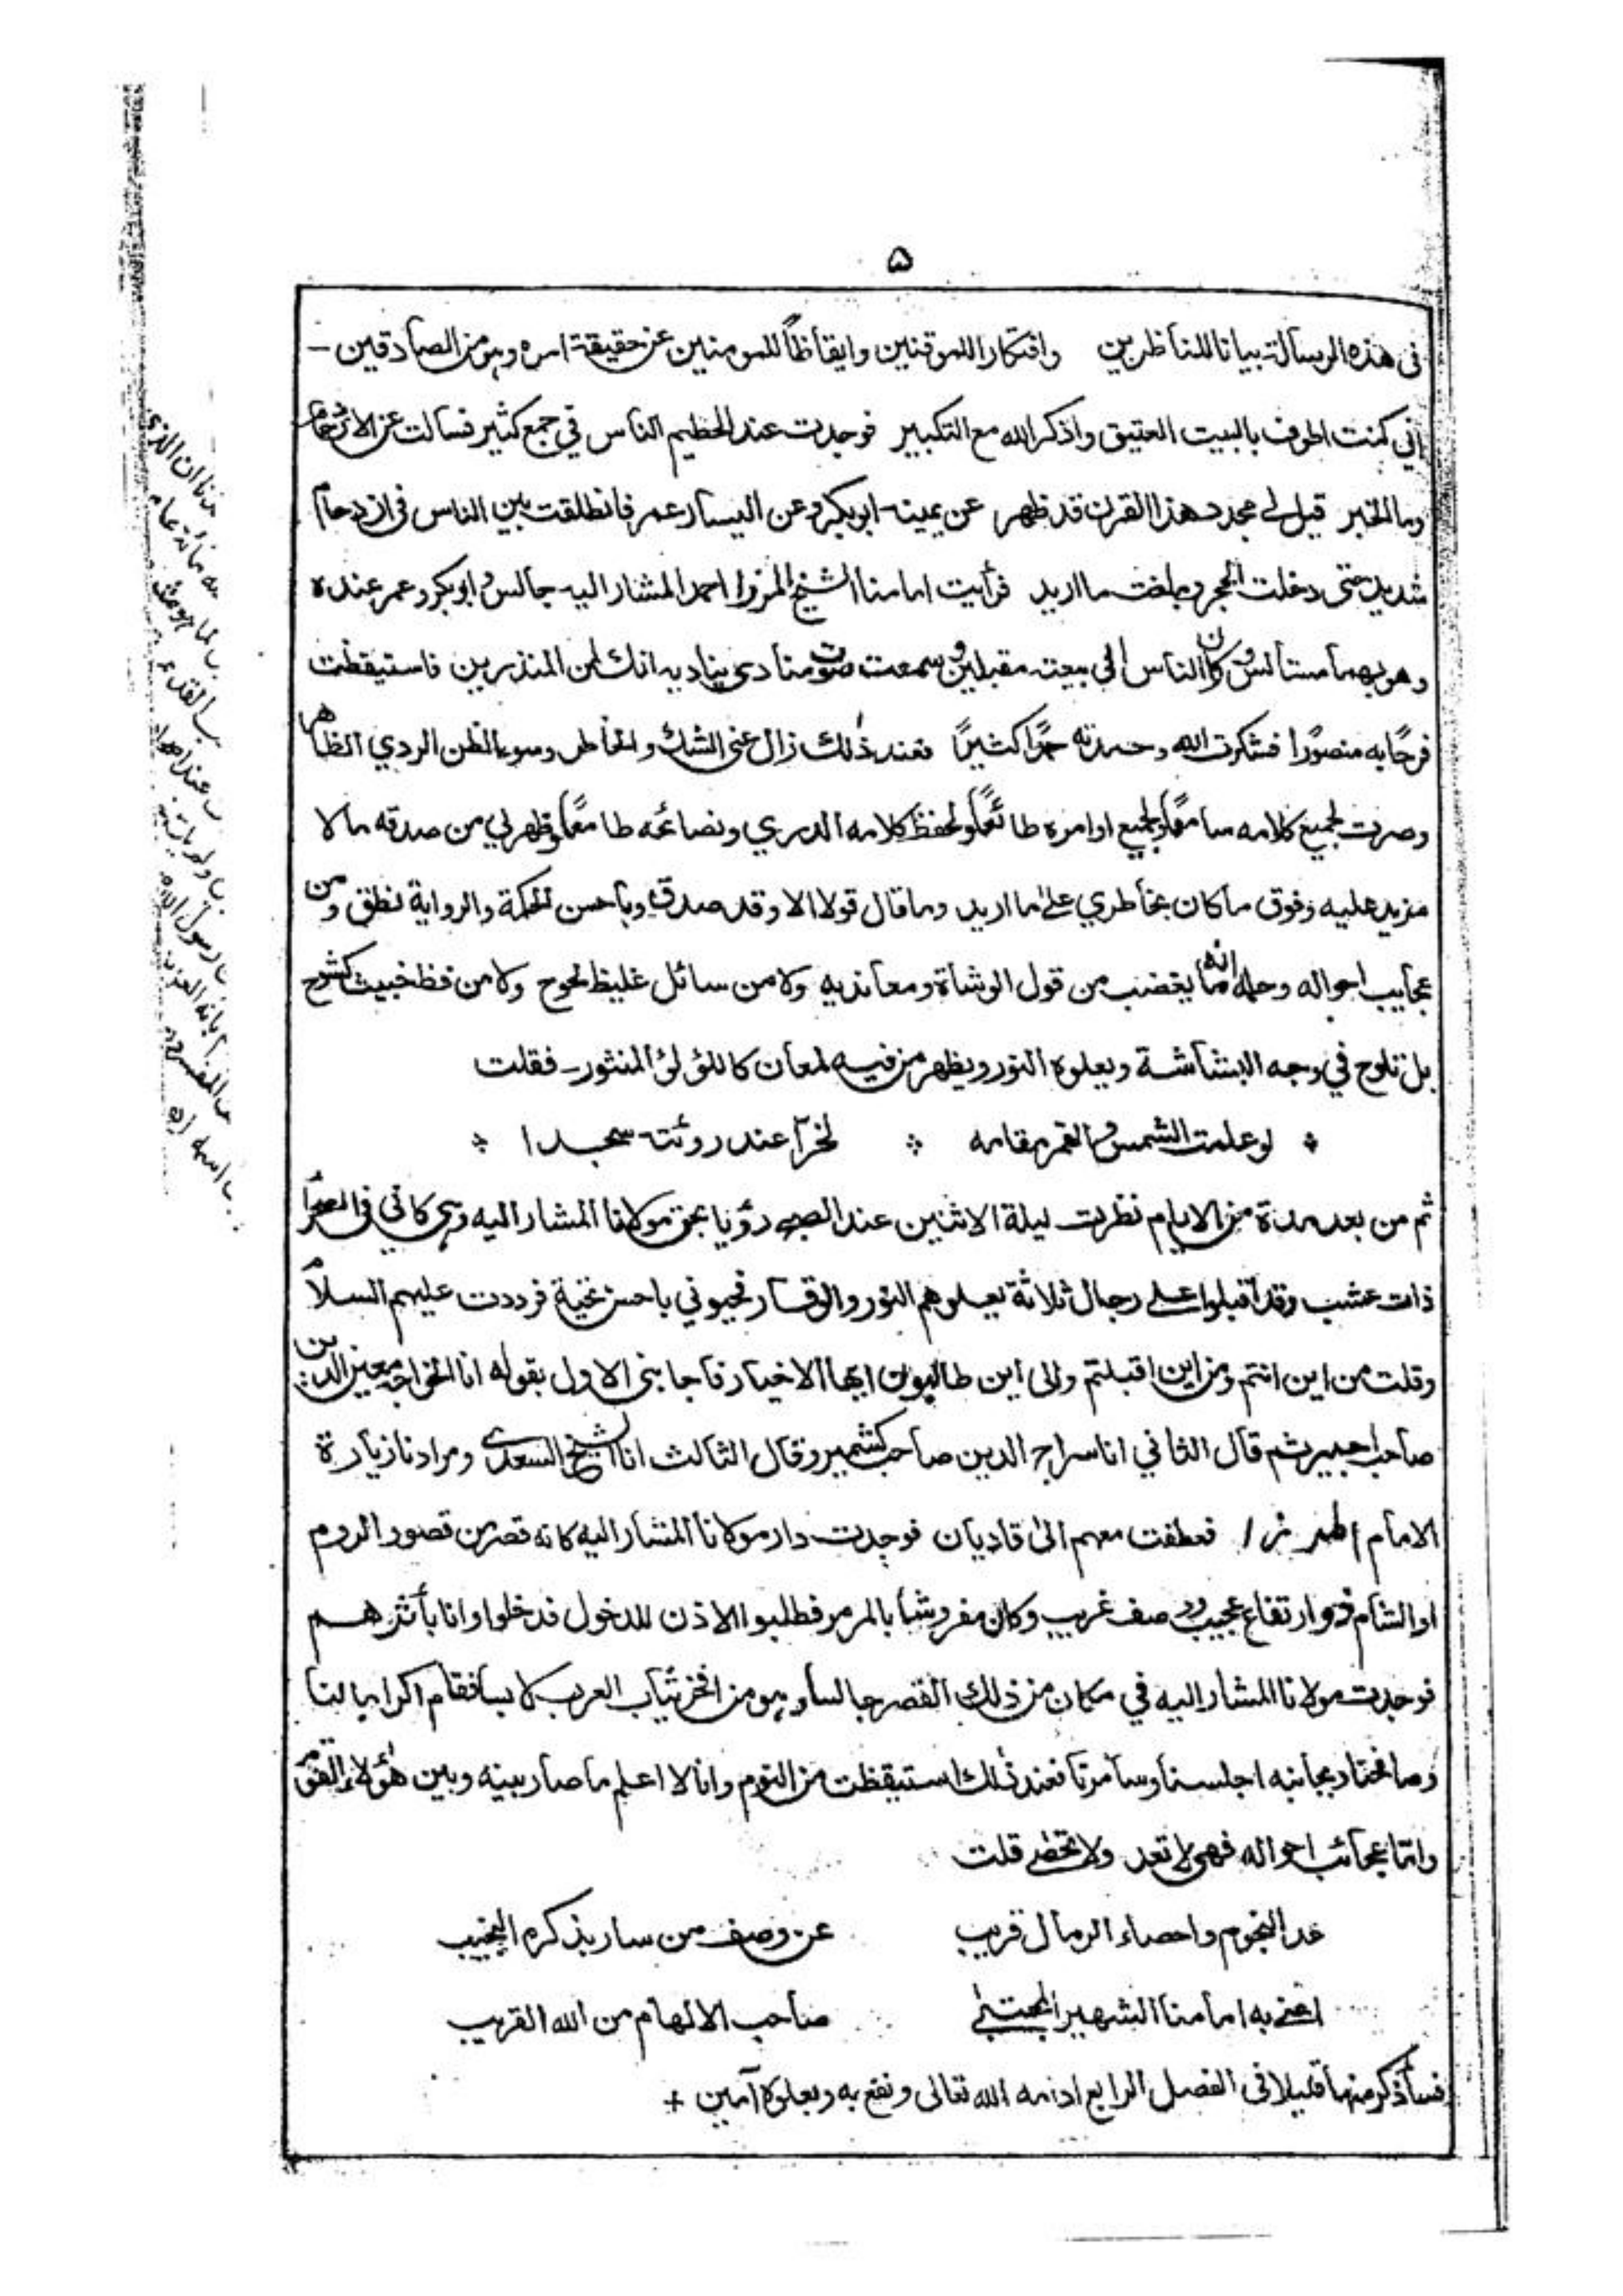 ۵
فی هذه الرسالة بیانا للناظرین وافتکارا للموقنین وایقاظاً للمومنین عن حقیقة امره وهو من الصادقین ـ
انی کنت اطوف بالبیت العتیق واذکر الله مع التکبیر فوجدت عند الحطیم الناس فی جمع کثیر فسالت عن الازدحام
وما الخبر قیل لی مجدد هذا القرن قد ظهر عن یمینه ابوبکر وعن الیسار عمر فانطلقت بین الناس فی ازدحام
شدید حتی دخلت الحجر وبلغت ما ارید فرأیت امامنا الشیخ المرزا احمد المشار الیه جالس وابوبکر وعمر عنده
وهو بهما مستأنس وکان الناس الی بیعته مقبلین وسمعت صوت منادی ینادیه انك لمن المنذرین فاستیقظت
فرحًا به منصورًا فشکرت الله وحمدته حمدًا کثیرًا فعند ذٰلك زال عنی الشك والخاطر وسوء الظن الردي الظاهر
وصرت لجمیع کلامه سامعًا ولجمیع اوامره طائعًا ولحفظ کلامه الدري ونصائحه طامعًا وظهر لي من صدقه ما لا
مزید علیه وفوق ما کان بخاطري علیٰ ما ارید وما قال قولا الا وقد صدق وباحسن الحکمة والروایة نطق ومن
عجایب احواله وحلمه انه ما یغضب من قول الوشاة ومعاندیه ولا من سائل غلیظ لحوح ولا من فظ خبیث کشوح
بل تلوح فی وجه البشاشة ویعلوه النور ویظهر من فیه لمعان کاللؤلؤ المنثور ـ فقلت
٭ لو علمت الشمس والقمر مقامه ٭ لخرّا عند روئته سجدا ٭
ثم من بعد مدة من الایام نظرت لیلة الاثنین عند الصبح رؤیا بحق مولانا المشار الیه وهی کانی فی الصحرا
ذات عشب وقد اقبلوا علی رجال ثلاثة یعلوهم النور والوقار فحیوني باحسن تحیة فرددت علیهم السلام
وقلت من این انتم ومن این اقبلتم والی این طالبون ایها الاخیار فاجابنی الاول بقوله انا الخواجه معین الدین
صاحب اجمیر ثم قال الثاني انا سراج الدین صاحب کشمیر وقال الثالث انا الشیخ السعدی ومرادنا زیارة
الامام فعطفت معهم الیٰ قادیان فوجدت دار مولانا المشار الیه کانه قصر من قصور الروم
او الشام ذو ارتفاع عجیب ووصف غریب وکان مفروشا بالمرمر فطلبوا الاذن للدخول فدخلوا وانا بأثرهم
فوجدت مولانا المشار الیه في مکان من ذلك القصر جالسا وهو من افخر ثیاب العرب لابسا فقام اکراما لنا
وصافحنا وبجانبه اجلسنا وسامرنا فعند ذٰلك استیقظت من النوم وانا لا اعلم ما صار بینه وبین هٰؤلاء القوم
وانما عجائب احواله فهی لا تعد ولا تحصٰی قلت
عد النجوم واحصاء الرمال قریب عن وصف من سار بذکره النجیب
اعنی به امامنا الشهیر المجتبیٰ صاحب الالهام من الله القریب
فسأذکر منها قلیلا فی الفصل الرابع ادامه الله تعالی ونفع به وبعلومه آمین +
ان الذی
مائة عام
القدم
رسول الله